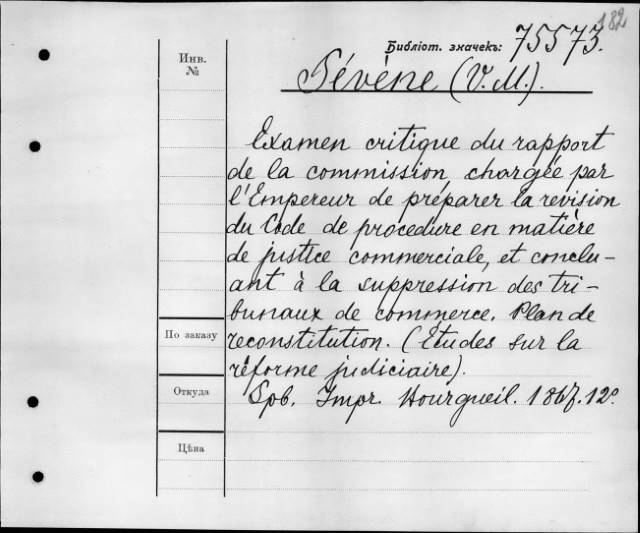 182
Библіот. значекъ: 75573.
Инв.
№
Sévène (V. M.).
Examen critique du rapport
de la commission chargée par
l'Empereur de préparer la revision
du Code de procedure en matière
de justice commerciale, et conclu-
ant à la suppression des tri-
bunaux de commerce. Plan de
reconstitution. (Etudes sur la
réforme judiciaire).
Spb. Impr. Hourgueil. 1867. 12º
По заказу
Откуда
Цѣна